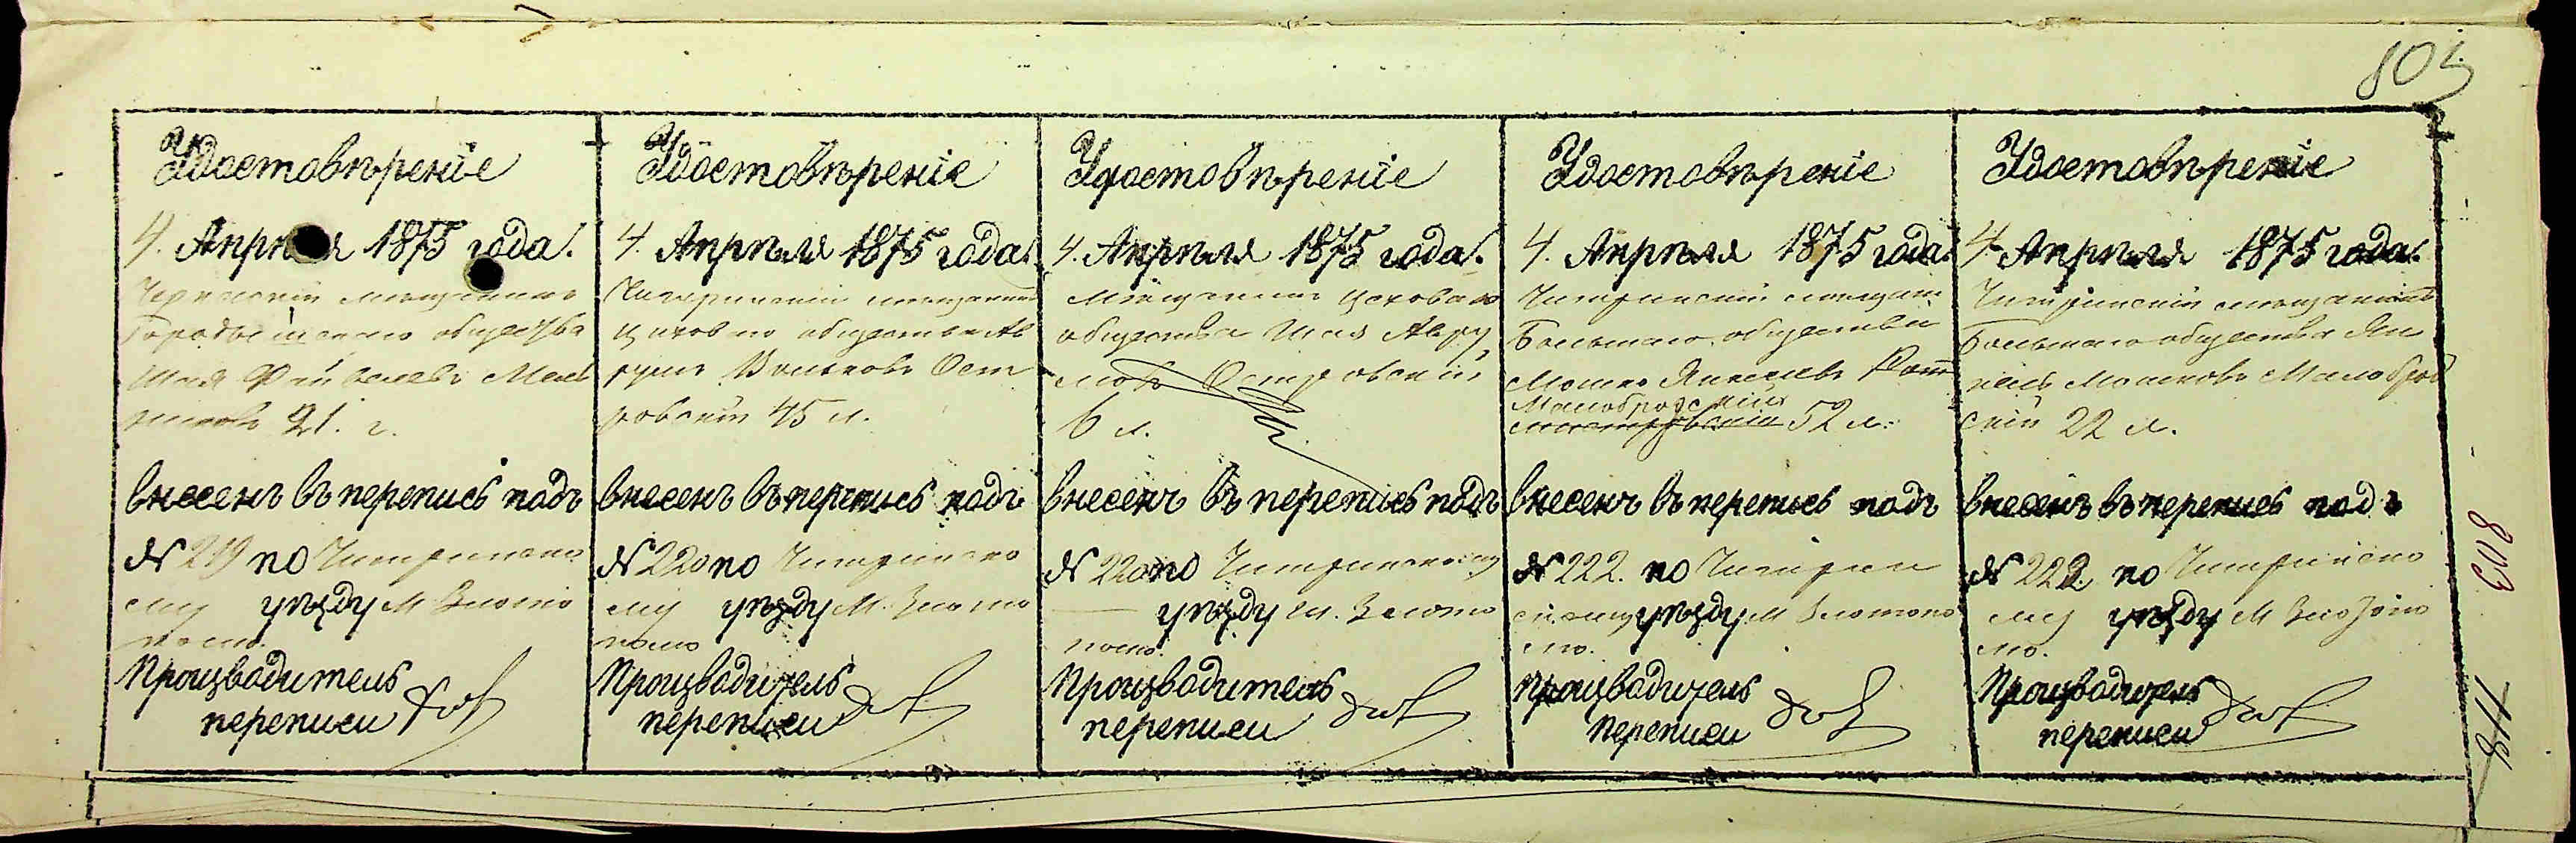 805
Удостовѣреніе
4. Апрѣля 1875 года.
мѣщанинъ
Городищенскаго общества
Шая
21. г.
внесенъ въ перепись подъ
№ 219 по Чигиринско
му уѣзду М Злато
поль.
Производитель
переписи
Удостовѣреніе
4. Апрѣля 1875 года.
Чигиринскій мѣщанинъ
общества Ав
румъ Вольковъ Ост
ровскій 45 л.
внесенъ въ перепись подъ
№ 220 по Чигиринско
му уѣзду М. Злато
поль
Производитель
переписи
Удостовѣреніе
4. Апрѣля 1875 года.
Мѣщанинъ
общества Шая Авру
мовъ Островскій
6 л.
внесенъ въ перепись подъ
№ по Чигиринскому
уѣзду М. Злато
поль.
Производитель
переписи
Удостовѣреніе
4. Апрѣля 1875 года.
Чигиринскій мѣщан
общества
Мошко Янкелевъ
52 л.
внесенъ въ перепись подъ
№ 222. по Чигирин
скому уѣзду М Златопо
Производитель
переписи
Удостовѣреніе
4 Апрѣля 1875 года.
Чигиринскій мѣщанинъ
общества Ян
кель Мошковъ Малоброд
скій 22 л.
внесенъ въ перепись подъ
№ по Чигиринско
му уѣзду М Златоп
Производитель
переписи
803
811